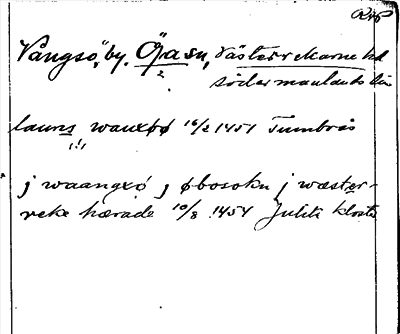 Vångsö, by. Öja sn, Västerrekarne hd
2 södermanlands län
laurns wauxøø 16/2 1451 Tumbrås
(!)
j waangxø j øbosokn j wæster-
reke hærade 10/8 1454 Julita kloster